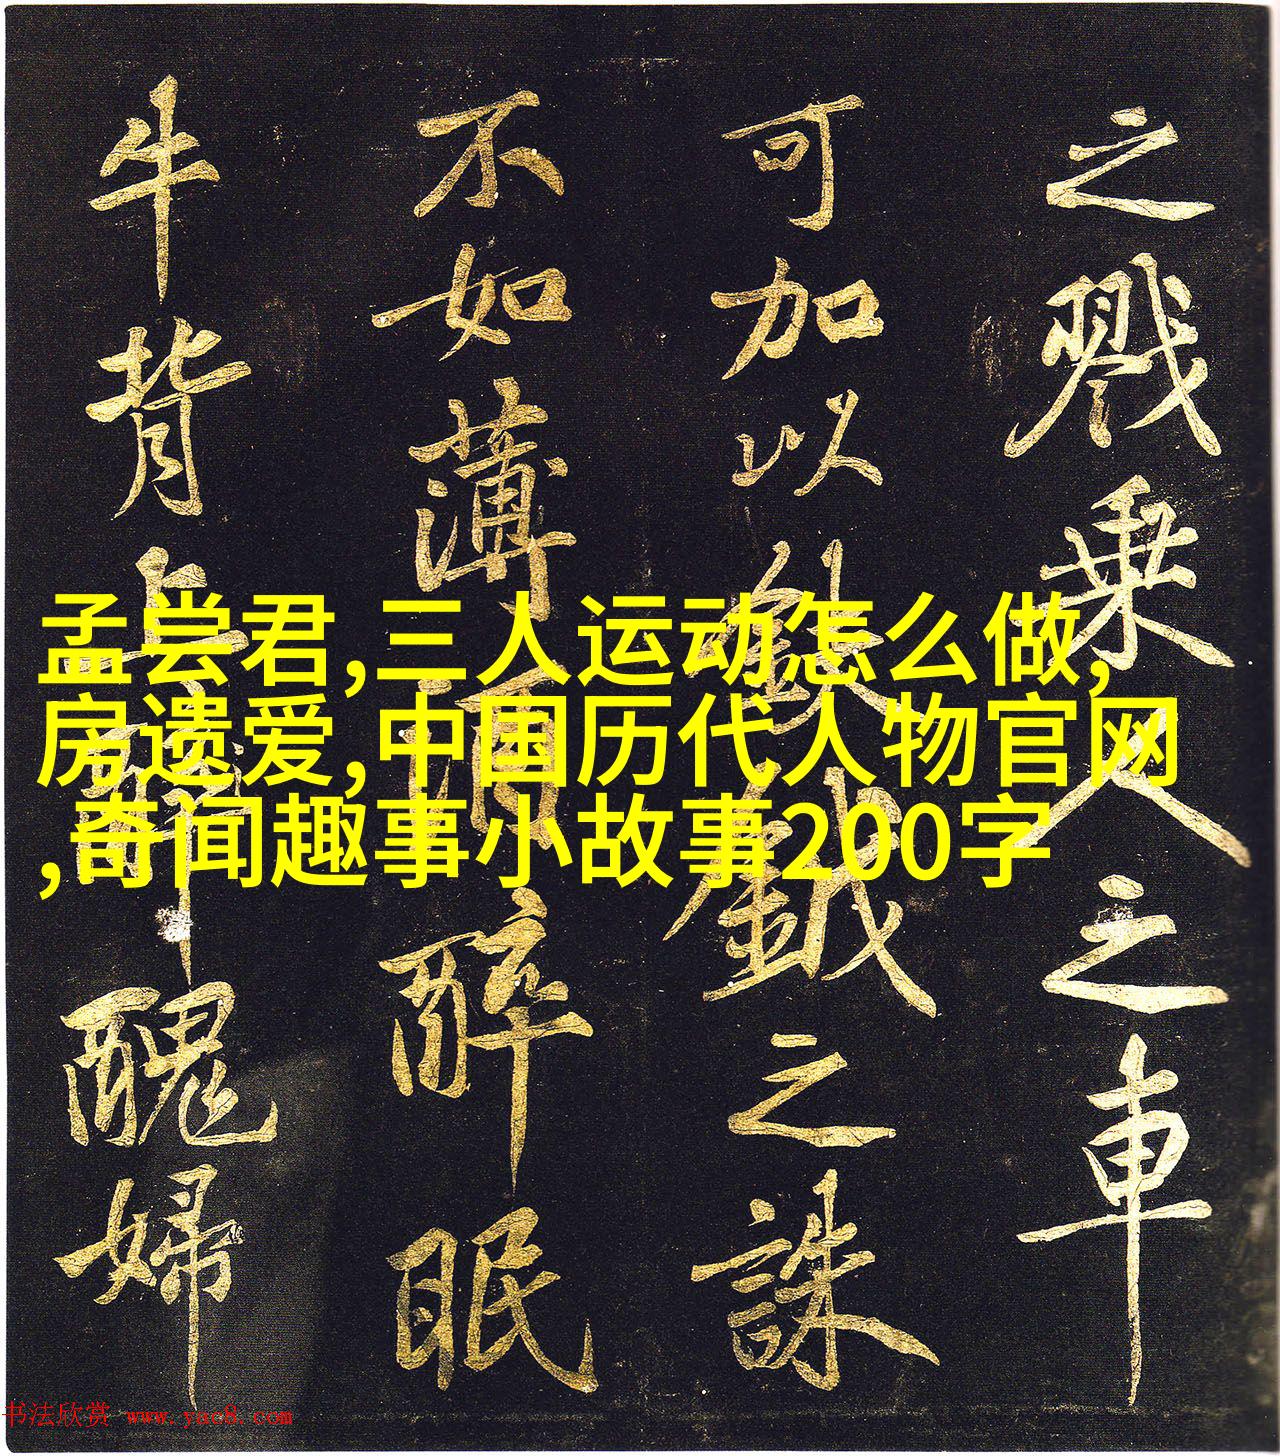 之戮乘人之車
可加以鈇鉞之誅
不如薄酒醉眠
牛背上醉醜婦
孟尝君,三人运动怎么做,
房遗爱,中国历代人物官网
,奇闻趣事小故事200字
书法欣赏 www.yac8.com